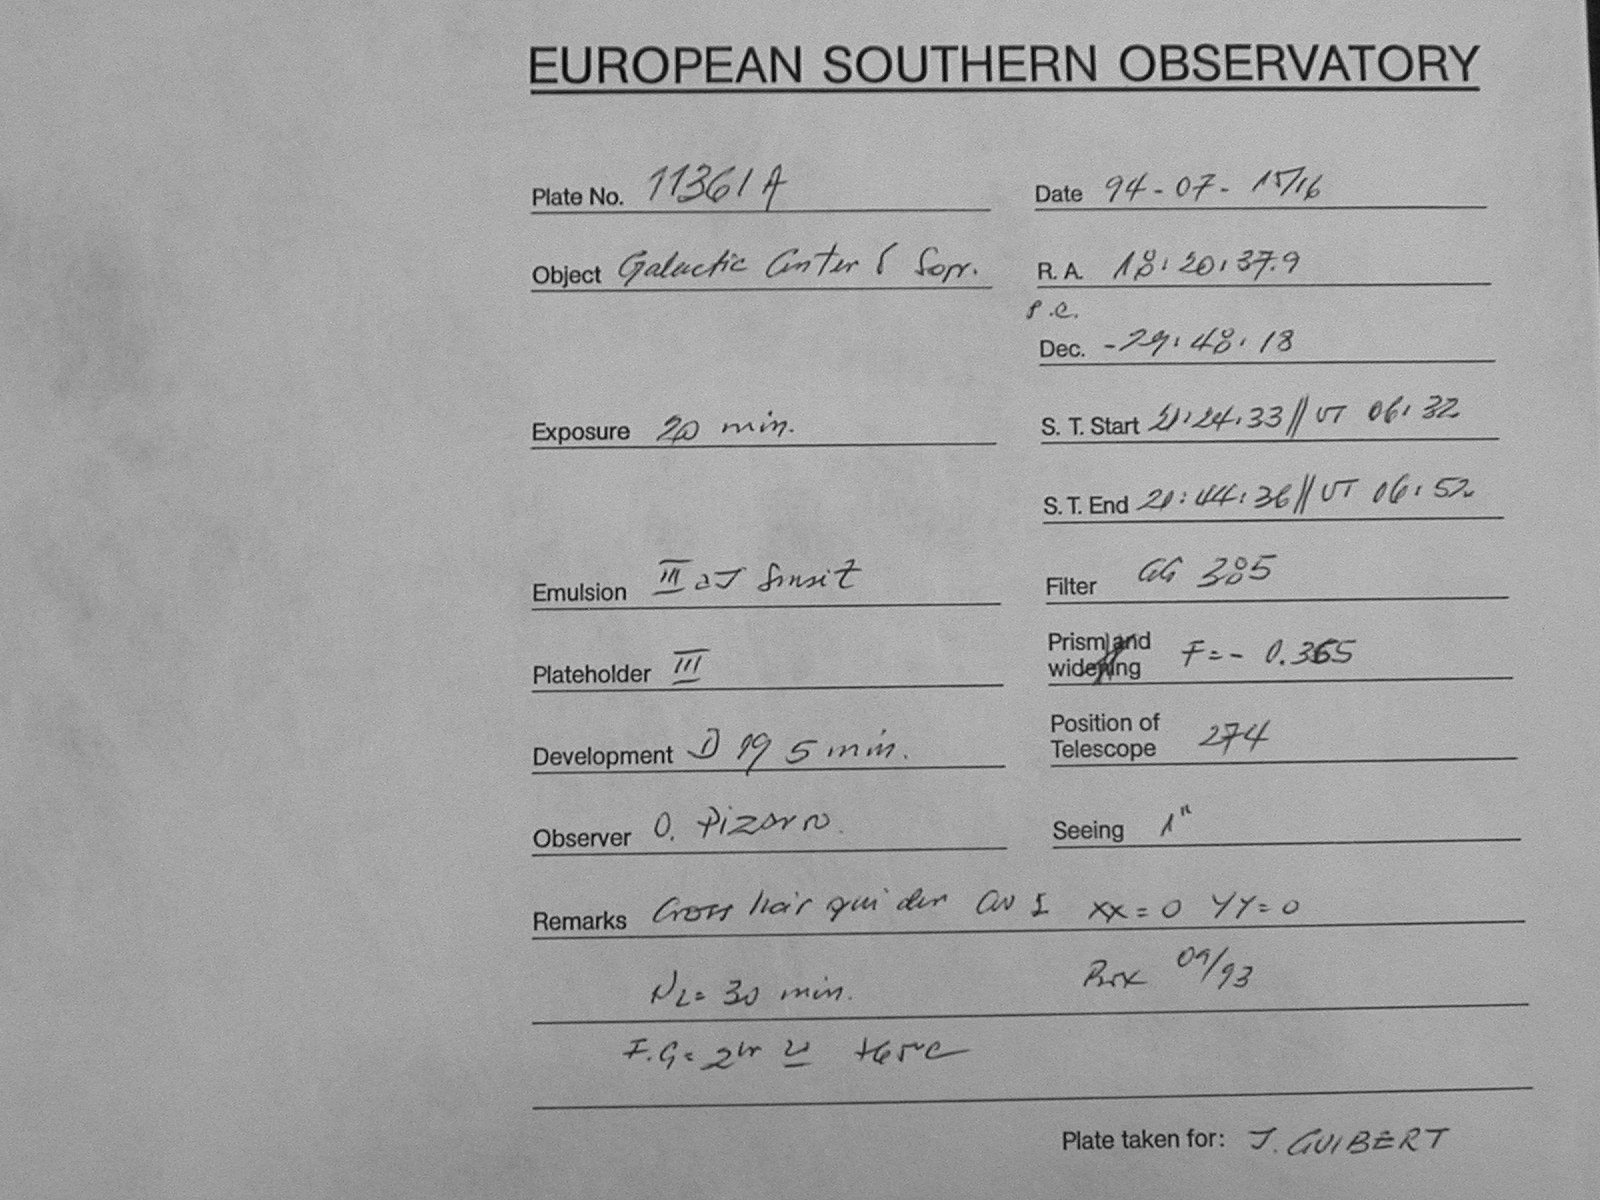 EUROPEAN SOUTHERN OBSERVATORY
Plate No. 11361A
Date 94-07-15/16
Object Galactic Center
R. A. 18:20:37.9
Dec. -29:48:18
Exposure 20 min.
S. T. Start 21:24:33 // UT 06:32
S. T. End 21:44:36 // UT 06:52
Emulsion III aJ
Filter GG 385
Plateholder III
Prism and widening F=- 0.365
Development D 19 5 min.
Position of Telescope 274
Observer O. Pizarro.
Seeing 1"
Remarks Cross hair guider XX=0 YY=0
NL= 30 min.
Box 09/93
F.G=
Plate taken for: J. GUIBERT